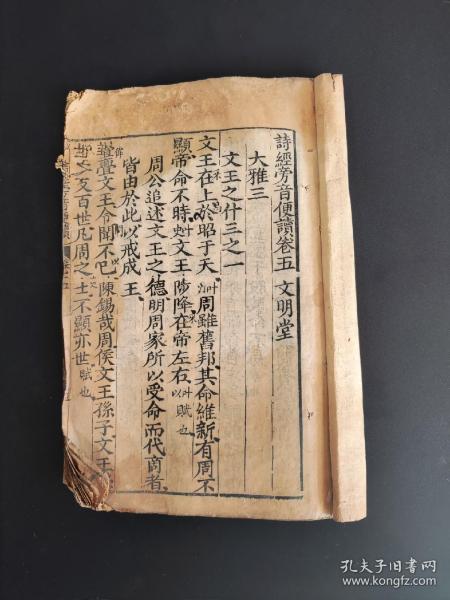 詩經旁音便讀卷五 文明堂
大雅三
文王之什三之一
文王在上於昭于天周雖舊邦其命維新有周不
顯帝命不時文王陟降在帝左右賦也
周公追述文王之德明周家所以受命而代商者
皆由於此以戒成王
亹亹文王令聞不已陳錫哉周侯文王孫子文王
支百世凡周之士不顯亦世賦也
孔夫子旧书网
www.kongfz.com